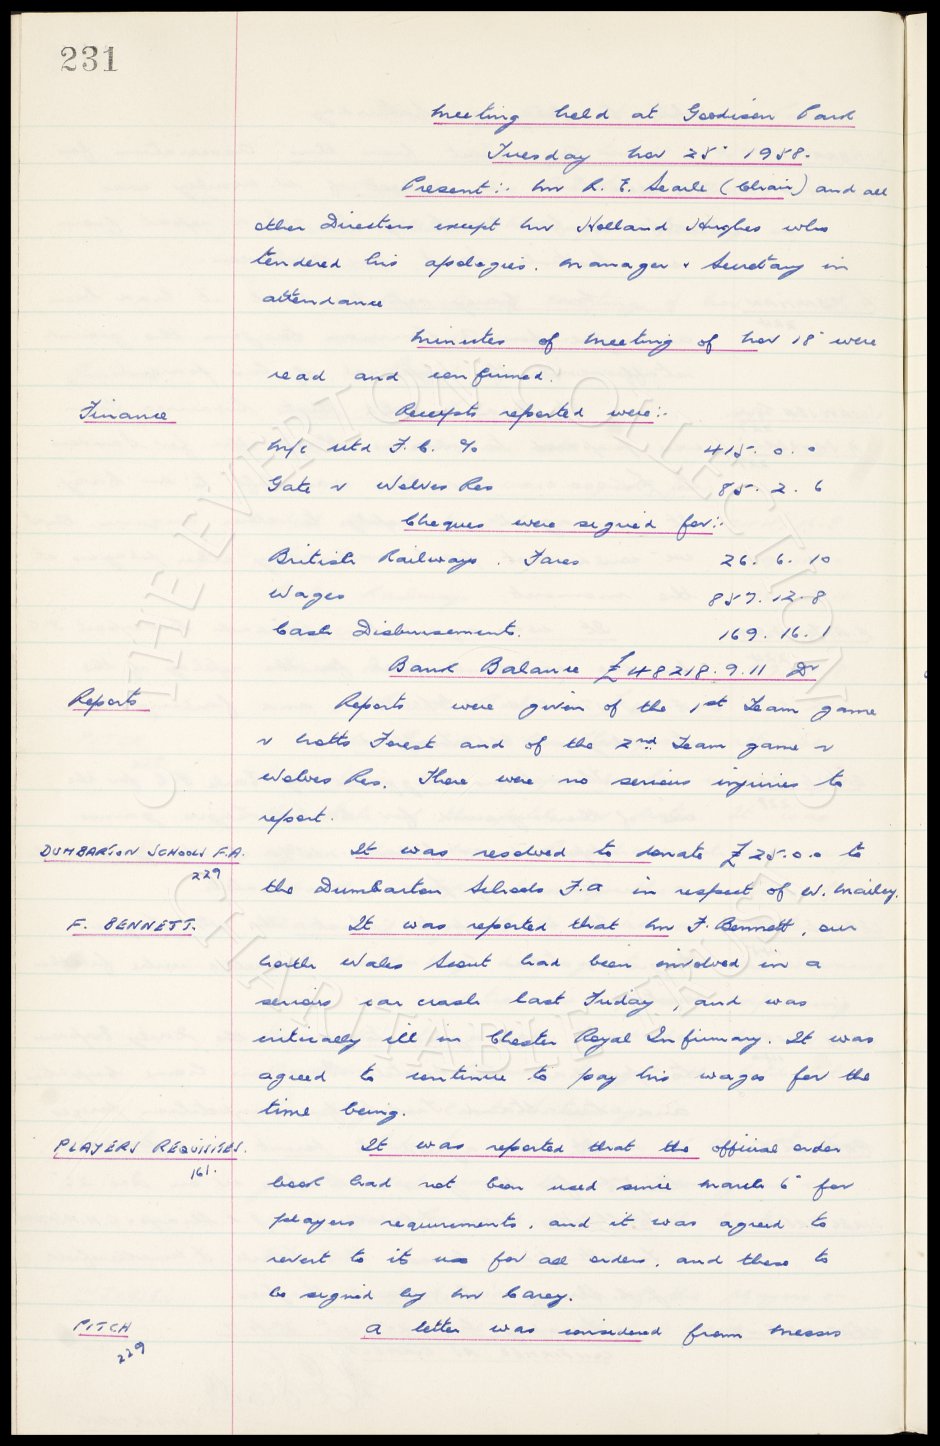 231
Meeting held at Goodison Park
Tuesday Nov 25° 1958.
Present:. Mr R. E. Searle (Chair) and all
other Directors except Mr Holland Hughes who
tendered his apologies. Manager & Secretary in
attendance
Minutes of Meeting of Nov 18° were
read and confirmed.
Finance
Receipts reported were:.
M/c Utd F.C. %
415. 0. 0
Gate v Wolves Res
85. 2. 6
Cheques were signed for:.
British Railways. Fares
26. 6. 10
Wages
857. 12. 8
Cash Disbursements.
169. 16. 1
Bank Balance £48218.9.11 Dr
Reports
Reports were given of the 1st Team game
v Notts Forest and of the 2nd Team game v
Wolves Res. There were no serious injuries to
report.
DUMBARTON SCHOOLS F.A.
229
It was resolved to donate £25.0.0 to
the Dumbarton Schools F.A in respect of W. Mailey.
F. BENNETT.
It was reported that Mr F. Bennett, our
North Wales Scout had been involved in a
serious car crash last Friday, and was
critically ill in Chester Royal Infirmary. It was
agreed to continue to pay his wages for the
time being.
PLAYERS REQUISITES.
161.
It was reported that the official order
book had not been used since March 6° for
players requirements. and it was agreed to
revert to its use for all orders. and these to
be signed by Mr Carey.
PITCH
229
A letter was considered from Messrs
THE EVERTON COLLECTION
CHARITABLE TRUST